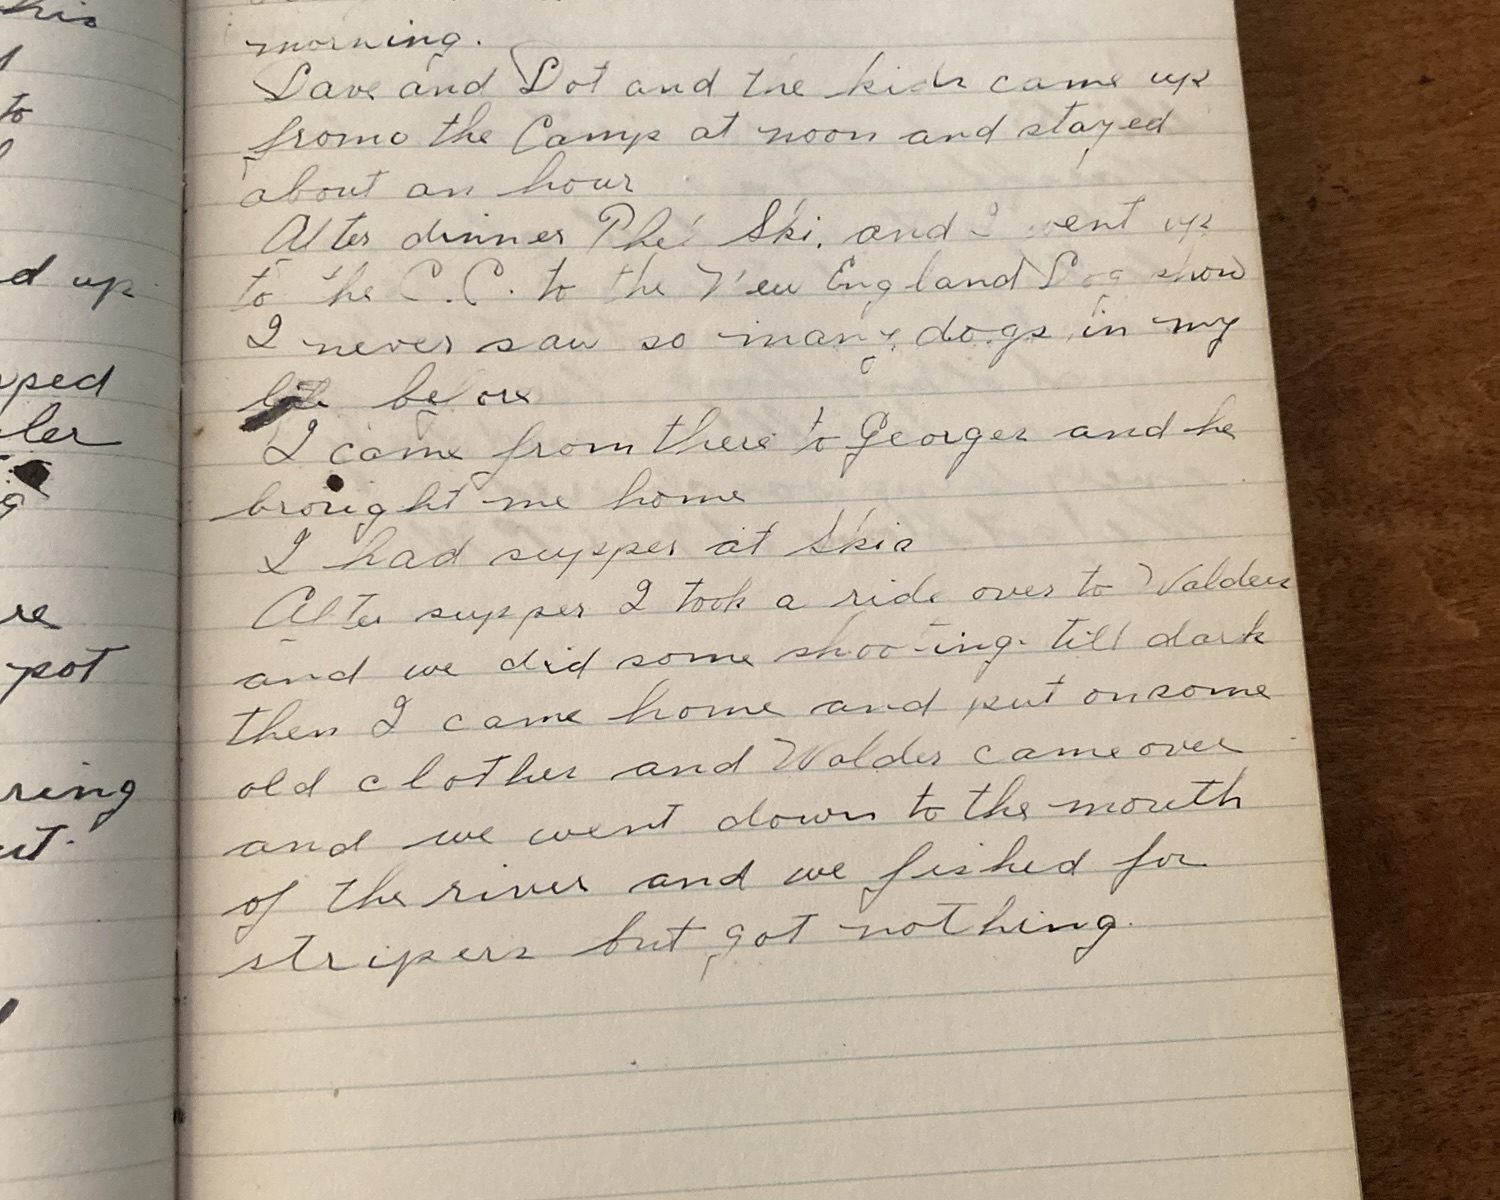 his
to
d up
pped
ler
re
pot
ring
ut.
morning.
Dave and Dot and the kids came up
from the Camp at noon and stayed
about an hour
After dinner Phe Ski. and I went up
to the C.C. to the New England Dog show
I never saw so many dogs in my
life before
I came from there to Georges and he
brought me home
I had supper at Skis
After supper I took a ride over to Walders
and we did some shooting till dark
then I came home and put on some
old clothes and Walder came over
and we went down to the mouth
of the river and we fished for
stripers but got nothing.